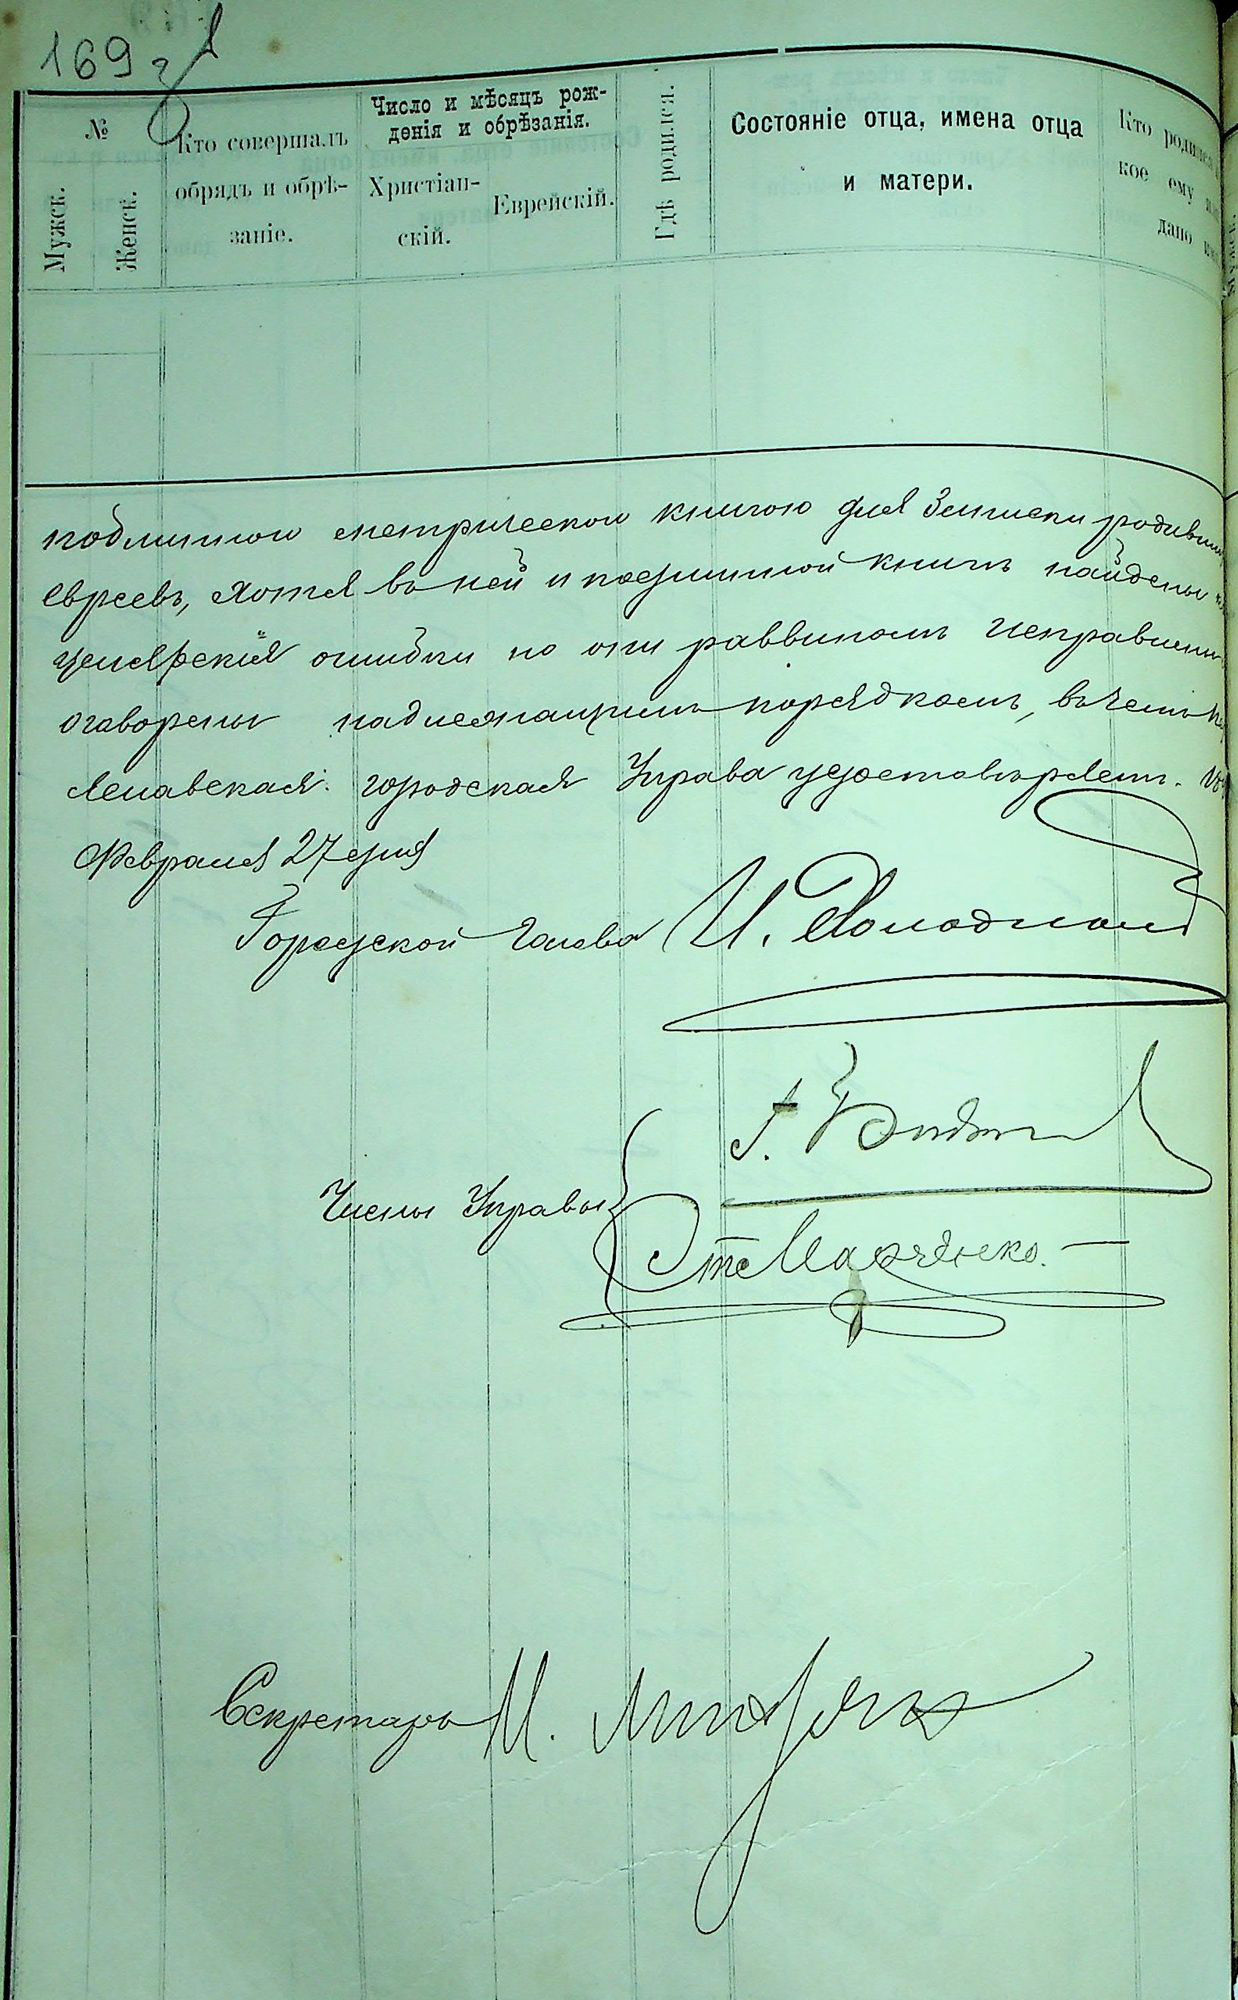 169
№
Мужск.
Женск.
Кто совершалъ
обрядъ и обрѣ-
заніе.
Число и мѣсяцъ рож-
денія и обрѣзанія.
Христіан-
скій.
Еврейскій.
Гдѣ родился.
Состояніе отца, имена отца
и матери.
Кто родился
кое ему
дано
подлинною метрическою книгою для записки родивш
евреевъ, хотя въ ней и подлинной книгѣ найдены
целярскія ошибки но они раввиномъ исправлены
оговорены надлежащимъ порядкомъ, въ чемъ
лославская городская Управа удостовѣряетъ.
Февраля 27 дня
Городской Голова И. Холодном
Члены Управы
Г.
Ст Марченко.
Секретарь М.